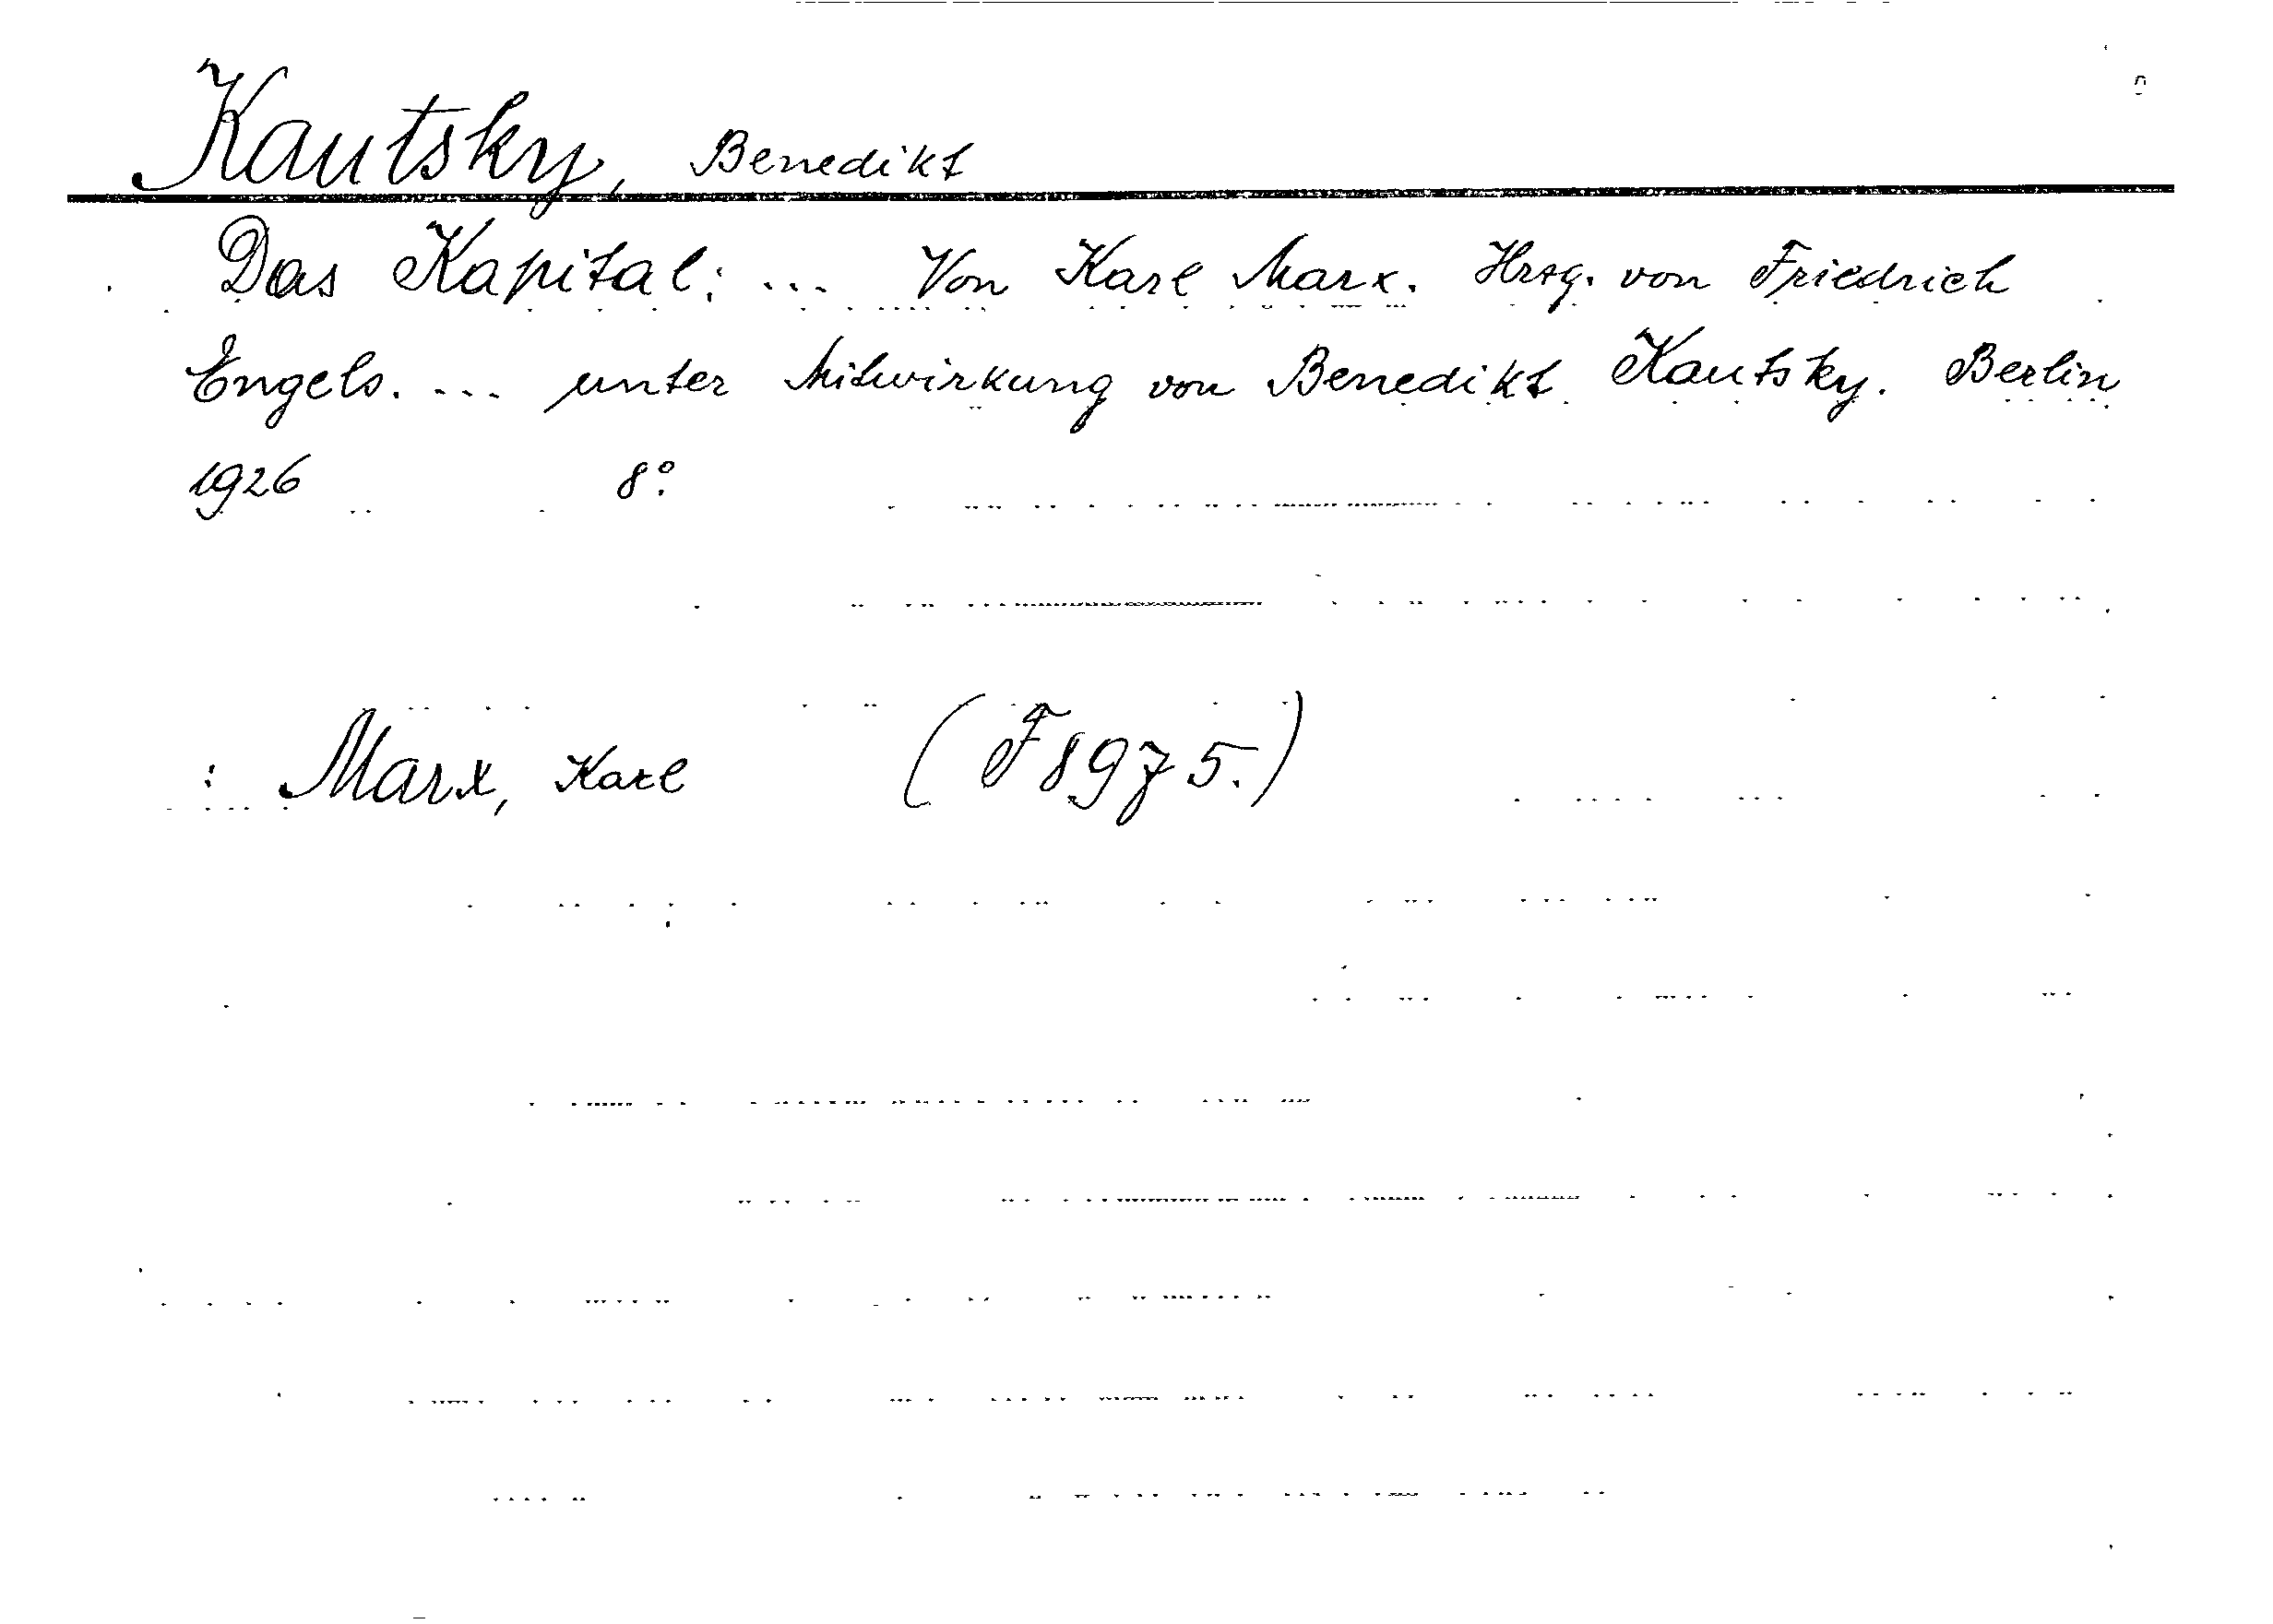 Kautsky, Benedikt
Das Kapital: ... Von Karl Marx. Hrsg. von Friedrich
Engels. ... unter Mitwirkung von Benedikt Kautsky. Berlin
1926 8°.
: Marx, Karl (F 8975.)